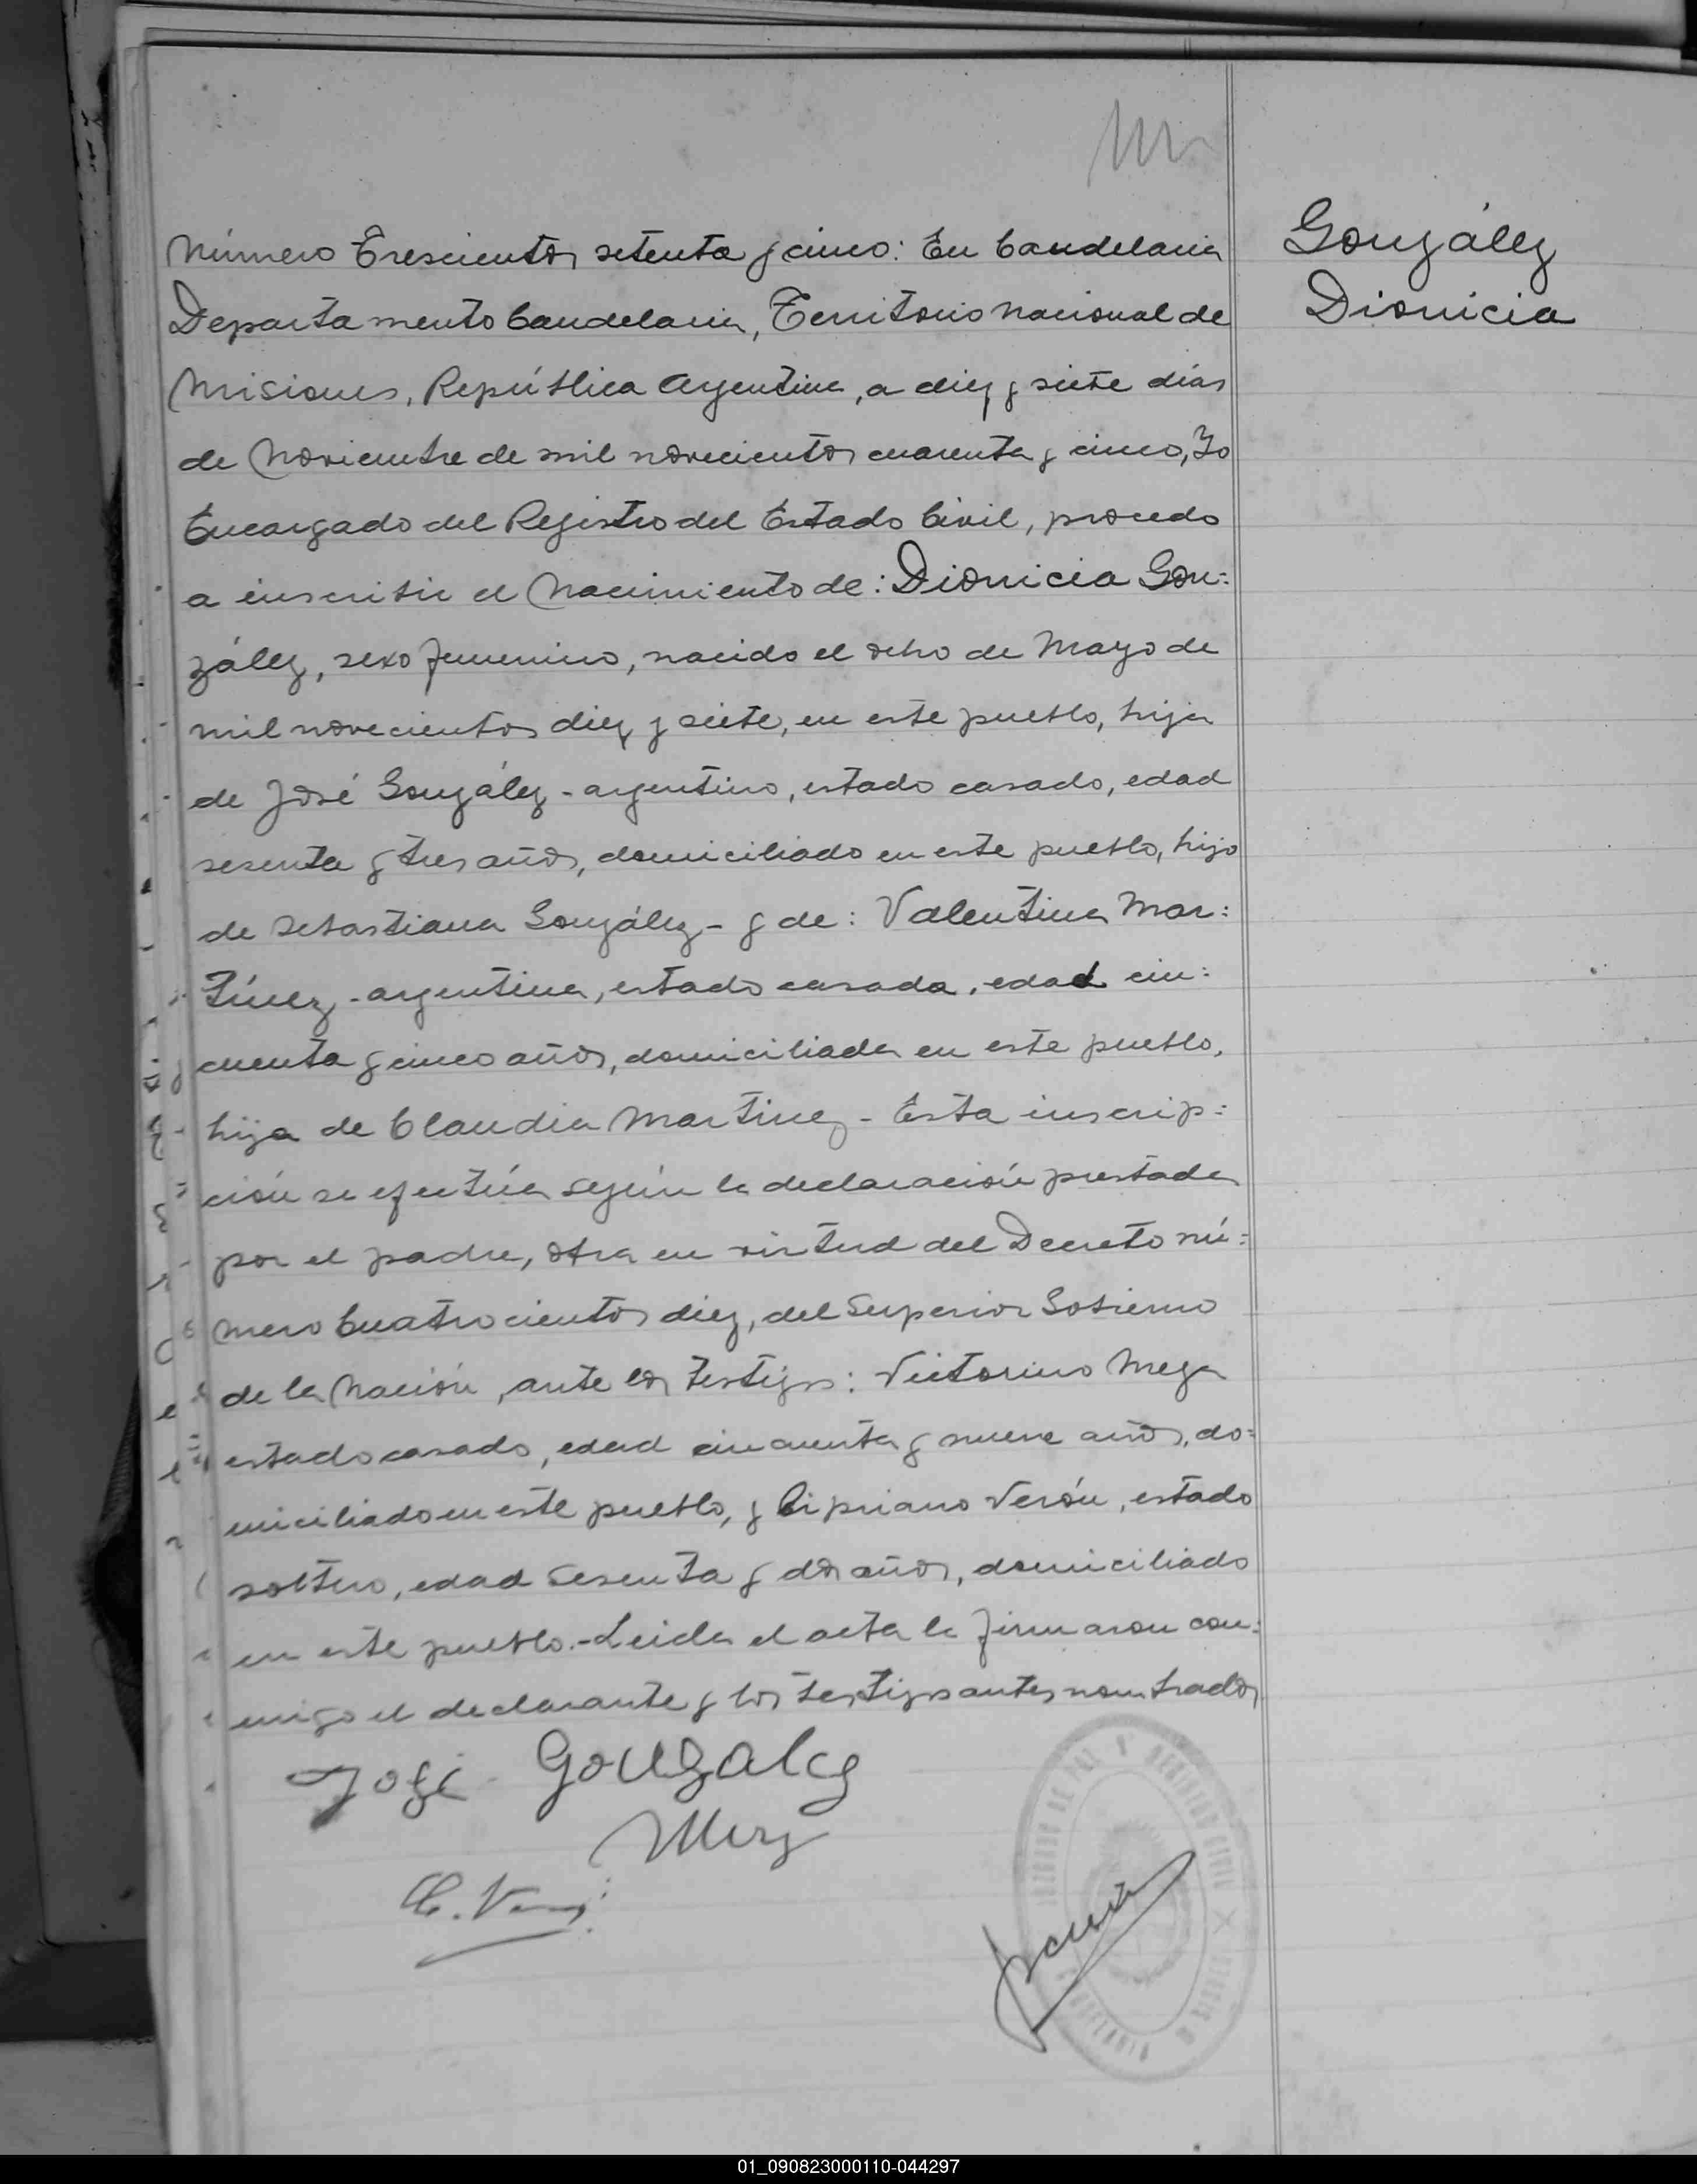 González
Dionicia
Número Trescientos setenta y cinco: En Candelaria
Departamento Candelaria, Territorio Nacional de
Misiones, República Argentina, a diez y siete días
de Noviembre de mil novecientos cuarenta y cinco, Yo
Encargado del Registro del Estado Civil, procedo
a inscribir el Nacimiento de: Dionicia Gon:
zález, sexo femenino, nacido el ocho de Mayo de
mil novecientos diez y siete, en este pueblo, hija
de José González - argentino, estado casado, edad
sesenta y tres años, domiciliado en este pueblo, hijo
de Sebastiana González - y de: Valentina Mar:
tínez - argentina, estado casada, edad cin:
cuenta y cinco años, domiciliada en este pueblo,
hija de Claudia Martinez - Esta inscrip:
ción se efectúa según la declaración prestada
por el padre, obra en virtud del Decreto nú:
mero Cuatrocientos diez, del Superior Gobierno
de la Nación, ante los testigos: Victorino Meza
estado casado, edad cincuenta y nueve años, do:
miciliado en este pueblo, y Cipriano Verón, estado
soltero, edad sesenta y dos años, domiciliado
en este pueblo.- Leida el acta la firmaron con:
migo el declarante y los testigos antes nombrados
José Gonzalez
C. Verón
JUZGADO DE PAZ Y REGISTRO CIVIL
01_090823000110-044297